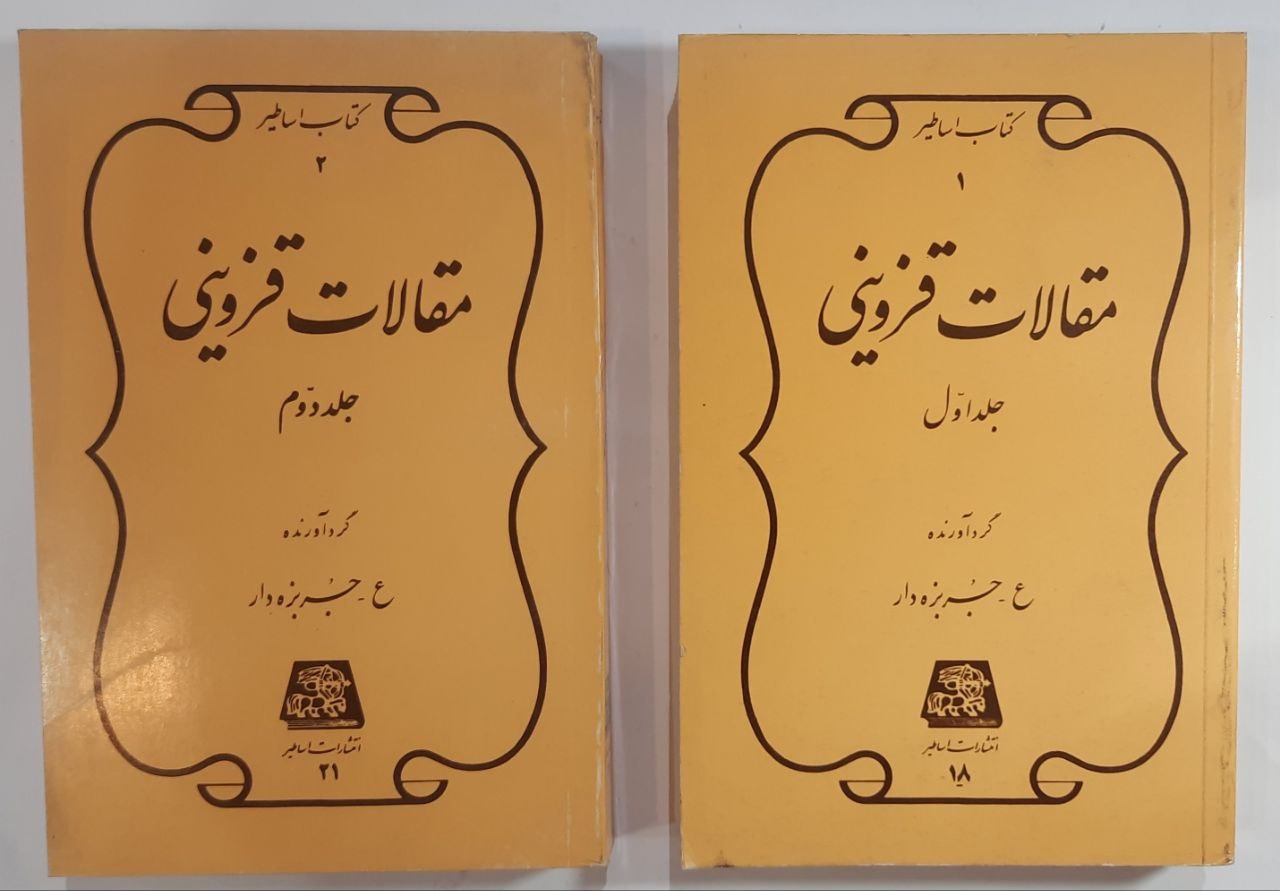 کتاب اساطیر
۱
مقالات قزوینی
جلد اوّل
گردآورنده
ع - جُربزه دار
انتشارات اساطیر
۱۸
کتاب اساطیر
۲
مقالات قزوینی
جلد دوّم
گردآورنده
ع - جُربزه دار
انتشارات اساطیر
۲۱